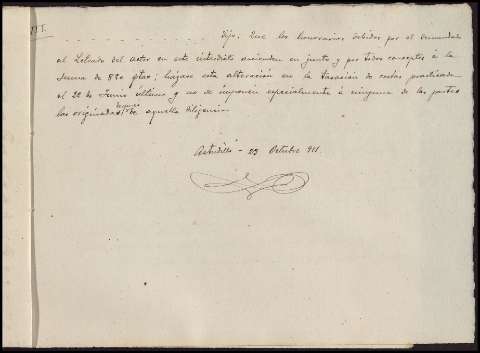 III.
Dijo: Que los honorarios debidos por el demandado
al Letrado del actor en este interdicto ascienden en junto y por todos conceptos á la
suma de 820 ptas; hágase esta alteración en la tasación de costas practicada
el 22 de Junio último y no se imponen especialmente á ninguna de las partes
las originadas después de aquella diligencia.
Astudillo - 23 Octubre 911.